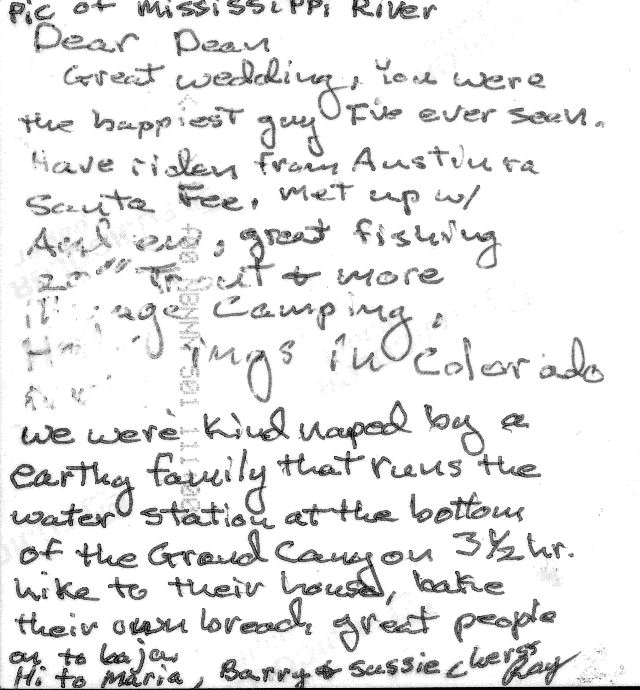 Pic of Mississippi River
Dear Dean
Great wedding, You were
the happiest guy I've ever seen.
Have riden from Austin
Santa Fee. Met up w/
great fishing
20"" Trout & more
Camping,
in Colorado
we were kindnaped by a
earthy family that runs the
water station at the bottom
of the Grand Canyon 3½ hr.
hike to their house, bake
their own bread, great people
on to baja,
Hi to Maria, Barry & Sussie Chers Ray